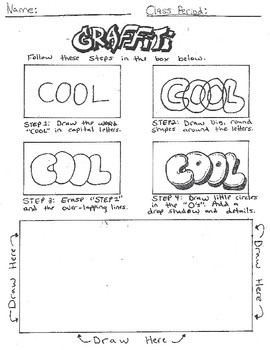 Name: Class Period:
GRAFFITI
Follow these steps in the box below.
COOL
COOL
STEP 1: Draw the word
"COOL" in capital letters.
STEP 2: Draw big, round
shapes around the letters.
COOL
COOL
STEP 3: Erase "STEP 1"
and the over-lapping lines.
STEP 4: Draw little circles
in the "O's". Add a
drop shadow and details.
Draw Here
Draw Here
Draw Here